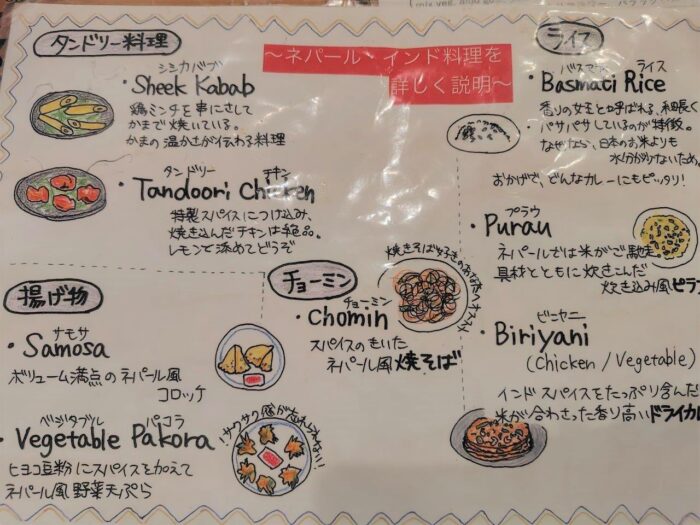 ～ネパール・インド料理を
詳しく説明～
タンドリー料理
シシカバブ
・Sheek Kabab
鶏ミンチを串にさして
かまで焼いている。
かまの温かさが伝わる料理
タンドリー チキン
・Tandoori Chicken
特製スパイスにつけ込み、
焼き込んだチキンは絶品。
レモンと添めてどうぞ
揚げ物
サモサ
・Samosa
ボリューム満点のネパール風
コロッケ
ベジタブル パコラ
・Vegetable Pakora
ヒヨコ豆粉にスパイスを加えて
ネパール風野菜天ぷら
サクサク感が忘れられない!
チョーミン
チョーミン
・Chomin
スパイスのもいた
ネパール風焼そば
焼きそば好きのあなたへオススメ
ライス
バスマティ ライス
・Basmati Rice
香りの女王と呼ばれる、細長く
パサパサしているのが特徴。
なぜなら、日本のお米よりも
水分が少ないため。
おかげで、どんなカレーにもピッタリ!
プラウ
・Purau
ネパールでは米がご馳走。
具材とともに炊きこんだ
炊き込み風ピラ
ビニヤニ
・Biriyani
(Chicken / Vegetable)
インドスパイスをたっぷり含んだ
米が合わさった香り高いドライカ